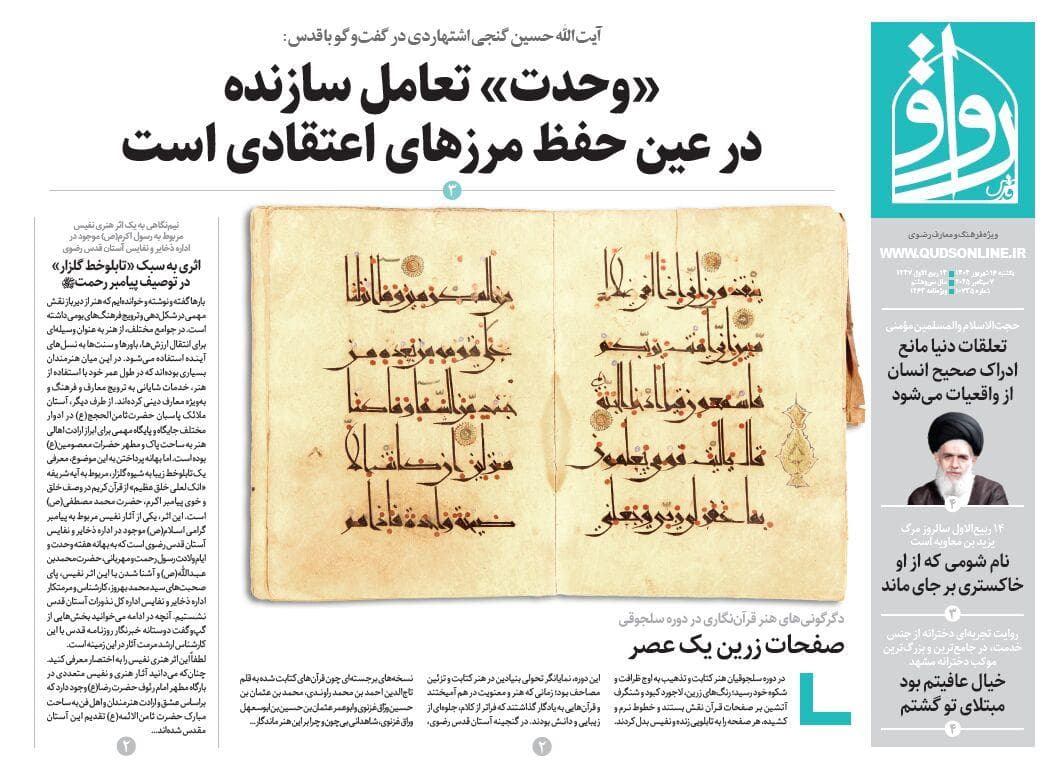 آیت‌الله حسین گنجی اشتهاردی در گفت‌وگو با قدس:
«وحدت» تعامل سازنده
در عین حفظ مرزهای اعتقادی است
۳
رواق
قدس
ویژه فرهنگ و معارف رضوی
WWW.QUDSONLINE.IR
یکشنبه ۱۶ شهریور ۱۴۰۴ ۱۴ ربیع‌الاول ۱۴۴۷
۷ سپتامبر ۲۰۲۵ سال سی‌وهشتم
شماره ۱۰۷۳۵ ویژه‌نامه ۱۴۶۳
حجت‌الاسلام والمسلمین مؤمنی
تعلقات دنیا مانع
ادراک صحیح انسان
از واقعیات می‌شود
۴
۱۴ ربیع‌الاول سالروز مرگ
یزید بن معاویه است
نام شومی که از او
خاکستری بر جای ماند
۳
روایت تجربه‌ای دخترانه از جنس
خدمت، در جامع‌ترین و بزرگ‌ترین
موکب دخترانه مشهد
خیال عافیتم بود
مبتلای تو گشتم
۴
دگرگونی‌های هنر قرآن‌نگاری در دوره سلجوقی
صفحات زرین یک عصر
در دوره سلجوقیان هنر کتابت و تذهیب به اوج ظرافت و
شکوه خود رسید؛ رنگ‌های زرین، لاجورد کبود و شنگرف
آتشین بر صفحات قرآن نقش بستند و خطوط نرم و
کشیده، هر صفحه را به تابلویی زنده و نفیس بدل کردند.
این دوره، نمایانگر تحولی بنیادین در هنر کتابت و تزئین
مصاحف بود؛ زمانی که هنر و معنویت در هم آمیختند
و قرآن‌هایی به یادگار گذاشتند که فراتر از کلام، جلوه‌ای از
زیبایی و دانش بودند. در گنجینه آستان قدس رضوی،
نسخه‌های برجسته‌ای چون قرآن‌های کتابت شده به قلم
تاج‌الدین احمد بن محمد راوندی، محمد بن عثمان بن
حسین وراق غزنوی و ابوعمر عثمان بن حسین بن ابوسعهل
وراق غزنوی، شاهدانی بی‌چون و چرا بر این هنر ماندگار...
۲
نیم‌نگاهی به یک اثر هنری نفیس
مربوط به رسول اکرم(ص) موجود در
اداره ذخایر و نفایس آستان قدس رضوی
اثری به سبک «تابلوخط گلزار»
در توصیف پیامبر رحمت ﷺ
بارها گفته و نوشته و خوانده‌ایم که هنر از دیرباز نقش
مهمی در شکل‌دهی و ترویج فرهنگ‌های بومی داشته
است. در جوامع مختلف، از هنر به عنوان وسیله‌ای
برای انتقال ارزش‌ها، باورها و سنت‌ها به نسل‌های
آینده استفاده می‌شود. در این میان هنرمندان
بسیاری بوده‌اند که در طول عمر خود با استفاده از
هنر، خدمات شایانی به ترویج معارف و فرهنگ و
به‌ویژه معارف دینی کرده‌اند. از طرف دیگر، آستان
ملائک پاسبان حضرت ثامن‌الحجج(ع) در ادوار
مختلف جایگاه و پایگاه مهمی برای ابراز ارادت اهالی
هنر به ساحت پاک و مطهر حضرات معصومین(ع)
بوده است. اما بهانه پرداختن به این موضوع، معرفی
یک تابلوخط زیبا به شیوه گلزار، مربوط به آیه شریفه
«انک لعلی خلق عظیم» از قرآن کریم در وصف خلق
و خوی پیامبر اکرم، حضرت محمد مصطفی(ص)
است. این اثر، یکی از آثار نفیس مربوط به پیامبر
گرامی اسلام(ص) موجود در اداره ذخایر و نفایس
آستان قدس رضوی است که به بهانه هفته وحدت و
ایام ولادت رسول رحمت و مهربانی، حضرت محمد بن
عبدالله(ص) و آشنا شدن با این اثر نفیس، پای
صحبت‌های سید محمد بهروز، کارشناس و مرمتکار
اداره ذخایر و نفایس اداره کل نذورات آستان قدس
نشستیم. آنچه در ادامه می‌خوانید بخش‌هایی از
گپ‌وگفت دوستانه خبرنگار روزنامه قدس با این
کارشناس ارشد مرمت آثار در این زمینه است.
لطفاً این اثر هنری نفیس را به اختصار معرفی کنید.
چنان‌که می‌دانید آثار هنری و نفیس متعددی در
بارگاه مطهر امام رئوف حضرت رضا(ع) وجود دارد که
براساس عشق و ارادت هنرمندان و اهل فن به ساحت
مبارک حضرت ثامن الائمه(ع) تقدیم این آستان
مقدس شده‌اند...
۲